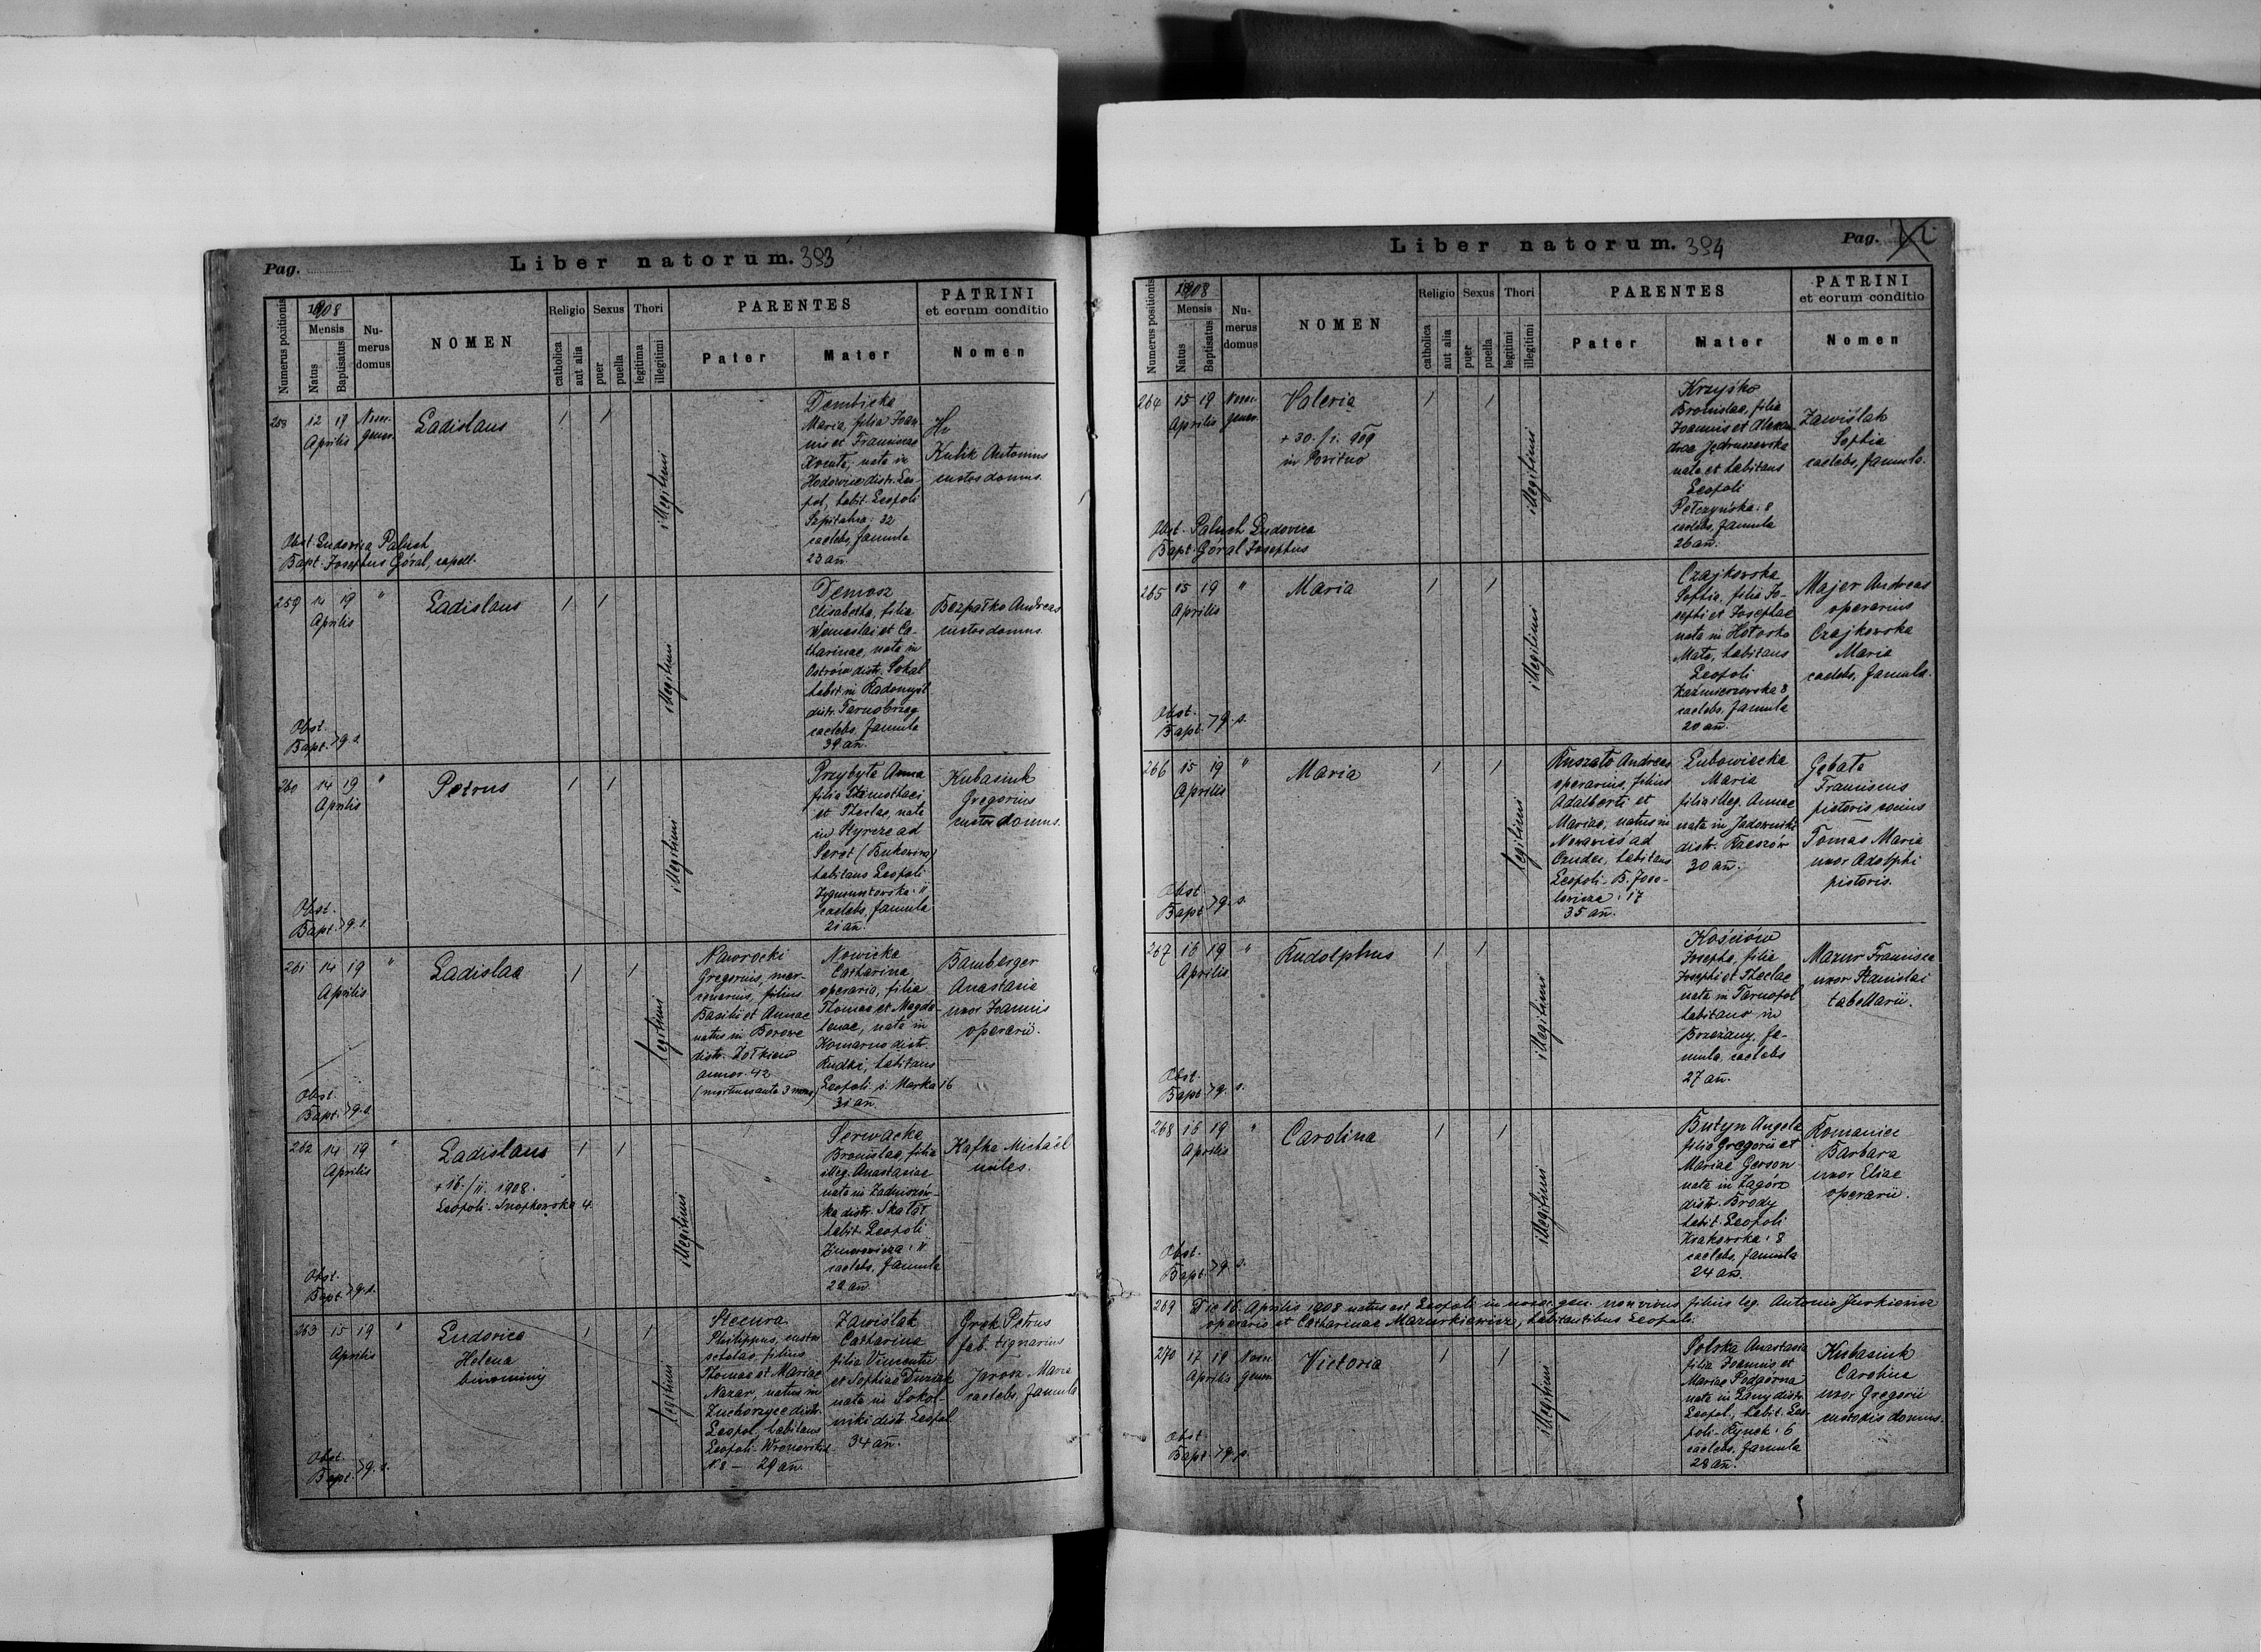 Pag.
Liber natorum. 393
Numerus pozitionis
1908
Mensis
Natus
Baptisatus
Nu-
merus
domus
NOMEN
Religio
catholica
aut alia
Sexus
puer
puella
Thori
legitima
illegitimi
PARENTES
Pater
Mater
PATRINI
et eorum conditio
Nomen
258
12 19
Aprilis
Noso.
gener.
Ladislaus
1 1
illegitimi
Dembicka
Maria, filia Joan-
nis et Franciscae
nata in
Hodowica distr. Leo-
pol, habit. Leopoli
Sapitalna: 32
caelebs, famula
23 añ.
Kulik Antonius
custos domus.
Obst. Ludovica Paluch
Bapt. Josephus Góral, capell.
259
14 19
Aprilis
"
Ladislaus
1 1
illegitimi
Demosz
Elisabetha, filia
Venceslai et Ca-
tharinae, nata in
Ostrów distr. Sokal
habit in Radomyśl
distr. Tarnobrzeg
caelebs, famula
39 añ.
Bezpałko Andreas
custos domus.
Obst.
Bapt. > q. s.
260
14 19
Aprilis
"
Petrus
1 1
illegitimi
Przybyła Anna
filia Thimothaei
et Theclae, nata
in Styrcze ad
Seret (Bukowina)
habitans Leopoli
Zygmuntowska: 11
caelebs, famula
21 añ.
Kubasiuk
Gregorius
custos domus.
Obst.
Bapt. > q. s.
261
14 19
Aprilis
"
Ladislaa
1 1
legitimi
Nawrocki
Gregorius, mer-
cenarius, filius
Basilii et Annae
natus in Borowe
distr. Żółkiew
annor. 42
(mortuus ante 3 mens)
Nowicka
Catharina
operaria, filia
Thomae et Magda-
lenae, nata in
Komarno distr.
Rudki, habitans
Leopoli ś. Marka 16
31 añ.
Bamberger
Anastasia
uxor Joannis
operarii.
Obst.
Bapt. > q. s.
262
14 19
Aprilis
"
Ladislaus
+ 16./II. 1908.
Leopoli. Snopkowska 4.
1 1
illegitimi
Serwacka
Bronislaa, filia
illeg. Anastasiae
nata in Zadniszów-
ka distr. Skałat
habit. Leopoli
Zimorowicza: 11
caelebs, famula
22 añ.
Kafka Michaël
miles.
Obst.
Bapt. > q. s.
263
15 19
Aprilis
"
Ludovica
Helena
binominij
1 1
legitimi
Stecura
Philippus, custos
scholae, filius
Thomae et Mariae
Nazar, natus in
Zuchorzyce distr.
Leopol, habitans
Leopoli. Wronowskich
N. 8 - 29 añ.
Zawiślak
Catharina
filia Vincentii
et Sophiae Duziak
nata in Sokol-
niki distr. Leopol
34 añ.
Grak Petrus
fab. tignarius
Jarosz Maria
caelebs, famula
Obst.
Bapt. > q. s.
Liber natorum. 394
Pag.
Numerus positionis
1908
Mensis
Natus
Baptisatus
Nu-
merus
domus
NOMEN
Religio
catholica
aut alia
Sexus
puer
puella
Thori
legitimi
illegitimi
PARENTES
Pater
Mater
PATRINI
et eorum conditio
Nomen
264
15 19
Aprilis
Noso.
gener.
Valeria
+ 30./1. 909
in
1 1
illegitimi
Krzyśko
Bronislaa, filia
Joannis et Alexan-
drae Jędruszewska
nata et habitans
Leopoli
Pełczyńska: 8
caelebs, famula
26 añ.
Zawiślak
Sophia
caelebs, famula.
Obst. Paluch Ludovica
Bapt. Góral Josephus
265
15 19
Aprilis
"
Maria
1 1
illegitimi
Czajkowska
Sophia, filia Jo-
sephi et Josephae
nata in Hołosko
Małe, habitans
Leopoli
Kaźmierzowska 8
caelebs, famula
20 añ.
Majer Andreas
operarius
Czajkowska
Maria
caelebs, famula.
Obst.
Bapt. > q. s.
266
15 19
Aprilis
"
Maria
1 1
legitimi
Kuszało Andreas
operarius, filius
Adalberti et
Mariae, natus in
Nowawieś ad
Czudec, habitans
Leopoli - B. Joso-
lewicza: 17
35 añ.
Lubowiecka
Maria
filia illeg. Annae
nata in Jadowniki
distr. Rzeszów
30 añ.
Gębala
Franciscus
pistoris socius
Tomas Maria
uxor Adolphi
pistoris.
Obst.
Bapt > q. s.
267
16 19
Aprilis
"
Rudolphus
1 1
illegitimi
Kościów
Josepha, filia
Josephi et Theclae
nata in Tarnopol
habitans in
Brzeżany, fa-
mula, caelebs
27 añ.
Mazur Francisca
uxor Stanislai
tabellarii.
Obst.
Bapt > q. s.
268
16 19
Aprilis
"
Carolina
1 1
illegitimi
Butyn Angela
filia Gregorii et
Mariae Gerson
nata in Zagórz
distr. Brody
habit. Leopoli
Krakowska: 8
caelebs, famula
24 añ.
Romaniec
Barbara
uxor Eliae
operarii.
Obst.
Bapt. > q. s.
269 Die 16. Aprilis 1908 natus est Leopoli in noso. gen. non vivus filius leg. Antonio Jurkiewicz
operario et Catharinae Mazurkiewicz, habitantibus Leopoli.
270
17 19
Aprilis
Noso.
gener.
Victoria
1 1
illegitimi
Polska Anastasia
filia Joannis et
Mariae Podgórna
nata in Łany distr.
Leopol., habit. Leo-
poli - Rynek: 6
caelebs, famula
28 añ.
Kubasiuk
Carolina
uxor Gregorii
custodis domus.
Obst.
Bapt > q. s.